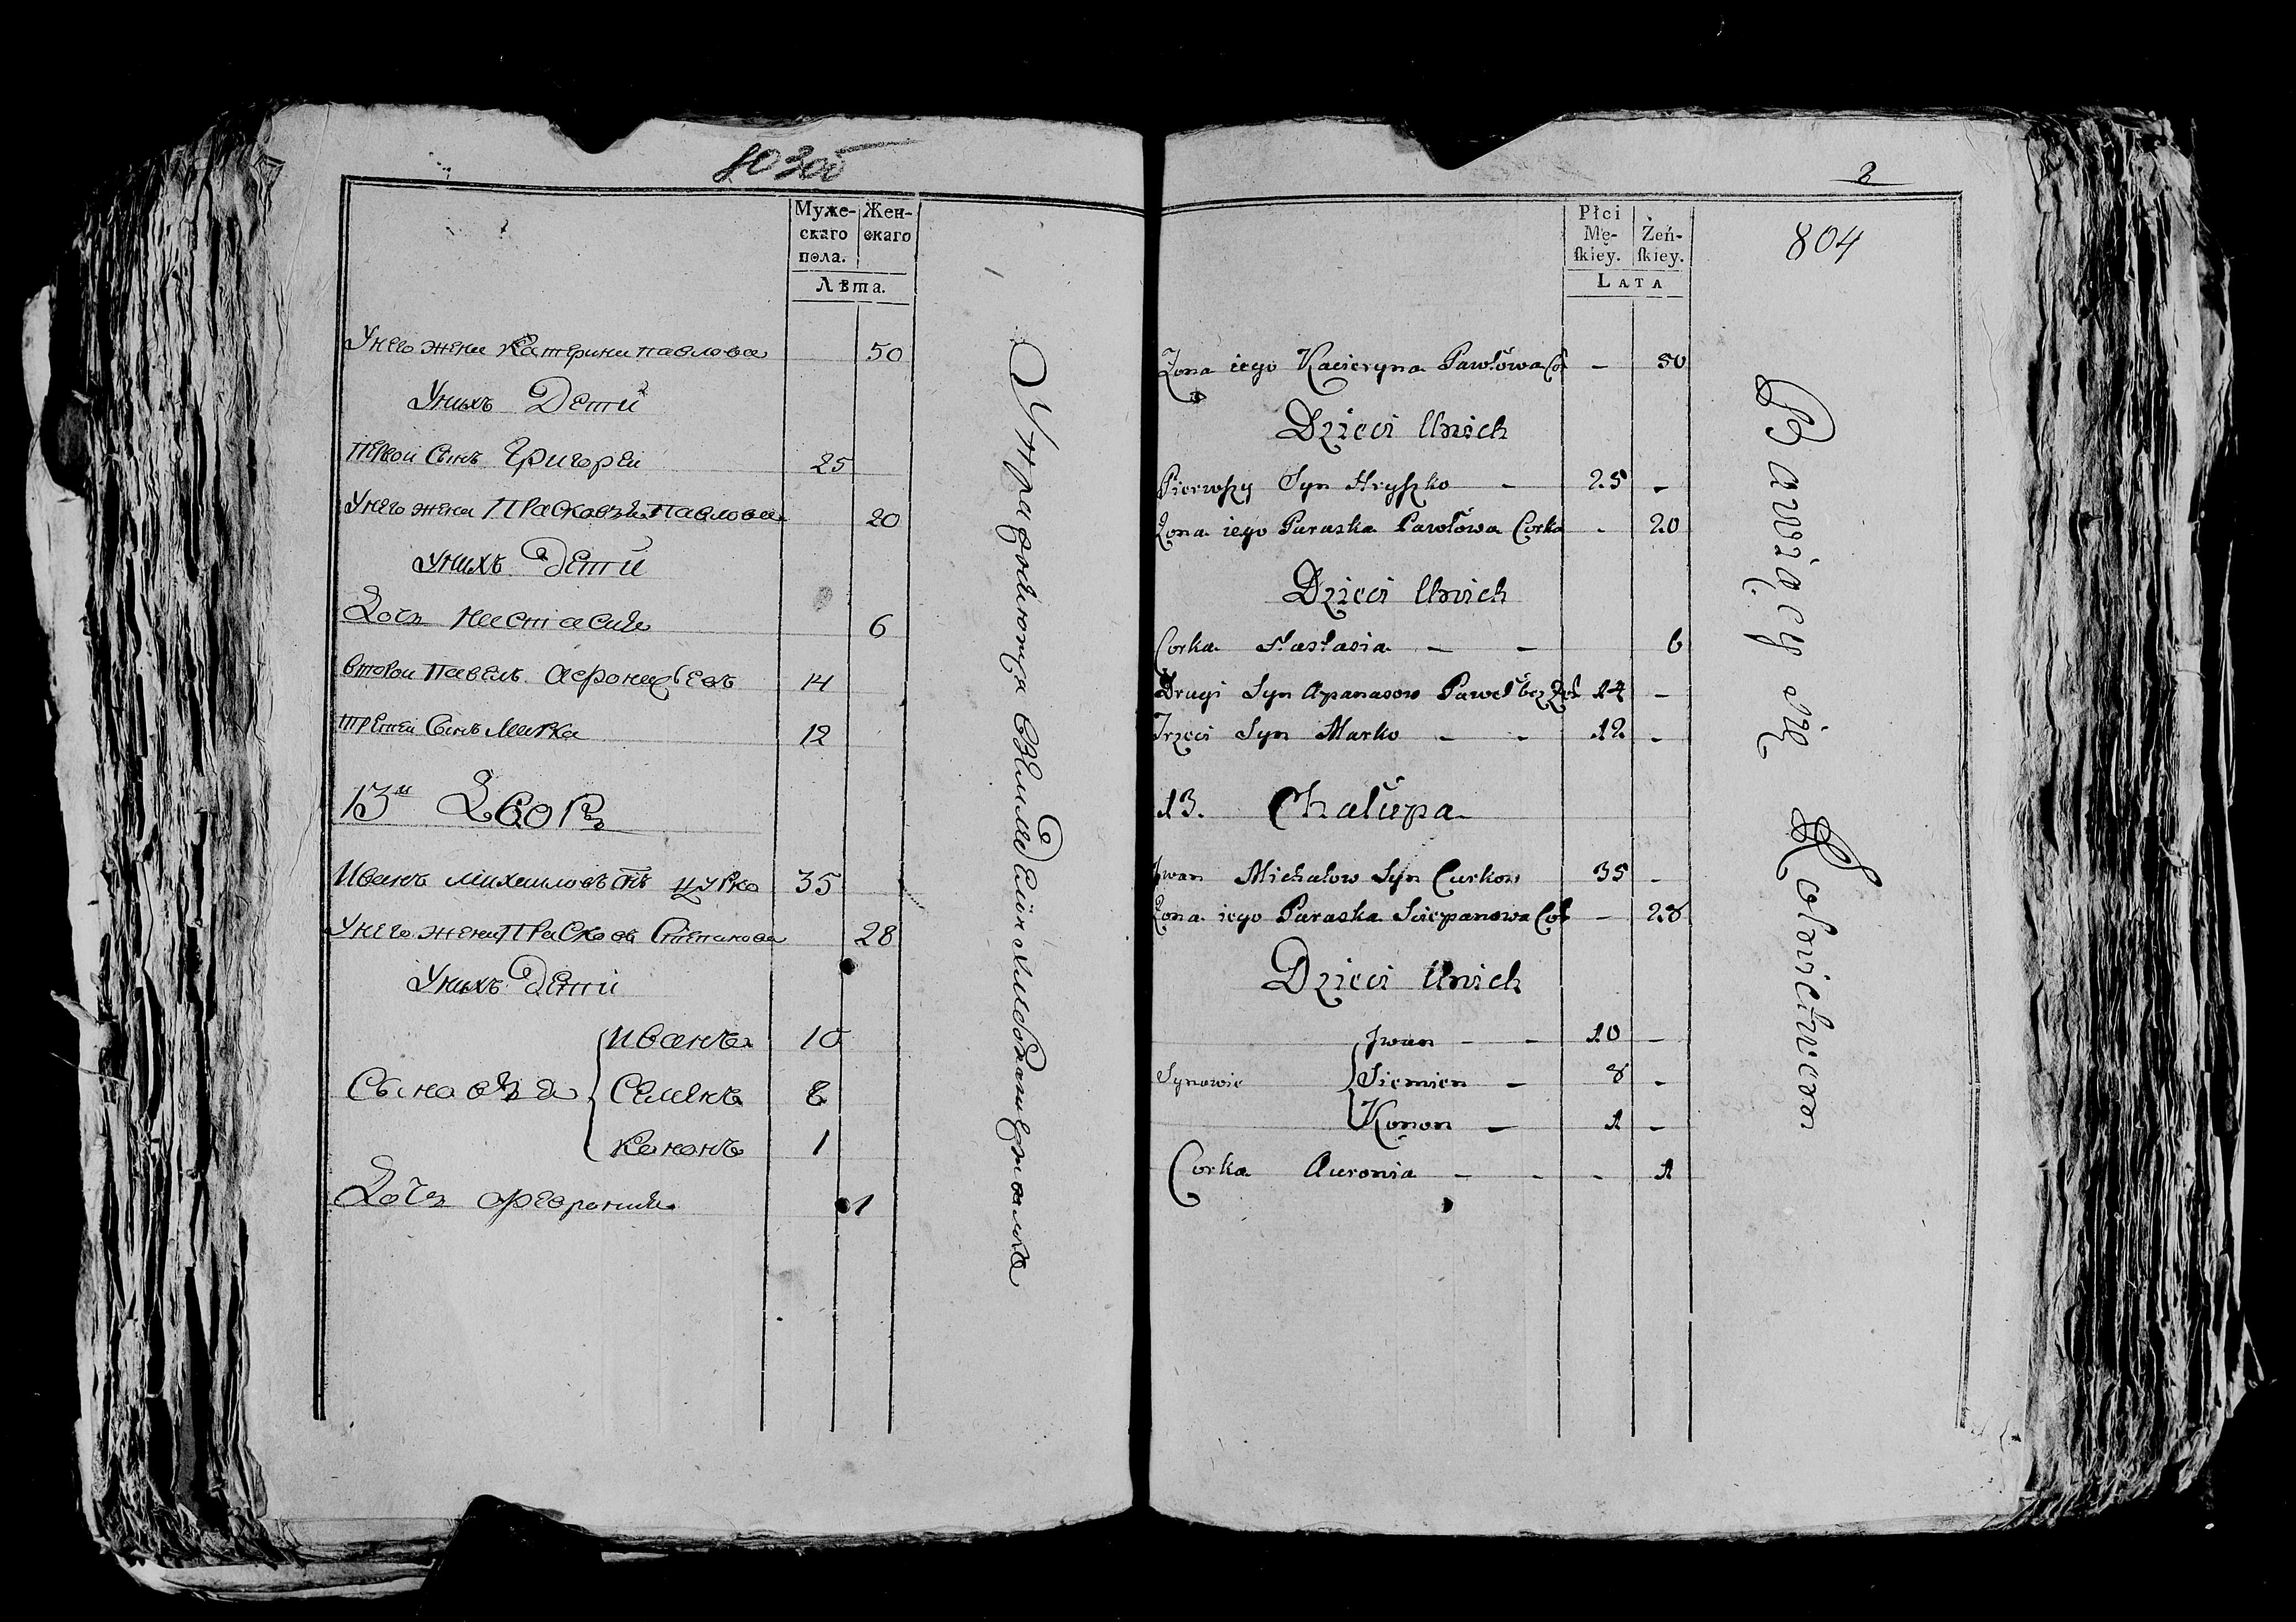 803об
Муже-
скаго
пола.
Жен-
скаго
Лѣта.
У него жена Катерина павлова 50
У нихъ Дети
первой Сынъ Григорей 25
У него жена Прасковья Павлова 20
У нихъ Дети
Дочь Настасия 6
второй Павелъ афонасьевъ 14
третей Сынъ Марка 12
13й Дворъ
Иванъ михаиловъ снъ цурко 35
У него жена Прасковья Степанова 28
У нихъ Дети
Иванъ 10
Сыновья Семенъ 8
Кононъ 1
Дочь Феврония 1
Упражняются в земледелии и хлебопашестве
2
804
Płci
Mę-
ſkiey.
Żeń-
ſkiey.
LATA
Zona iego Kacieryna Pawłowa Cor - 50
Dzieci Unich
Pierwſzy Syn Hryſzko - 25 -
Zona iego Paraska Pawłowa Corka - 20
Dzieci Unich
Corka Nastasia - - 6
Drugi Syn Apanasow Paweł bez Zon 14 -
Trzeci Syn Marko - - 12 -
13. Chałupa
Jwan Michałow Syn Curkow 35 -
Zona iego Paraska Sciepanowa Cor - 28
Dzieci Unich
Jwan - - 10 -
Synowie Siemien - 8 -
Konon - 1 -
Corka Auronia - - - 1
Bawiący się Rolnictwem